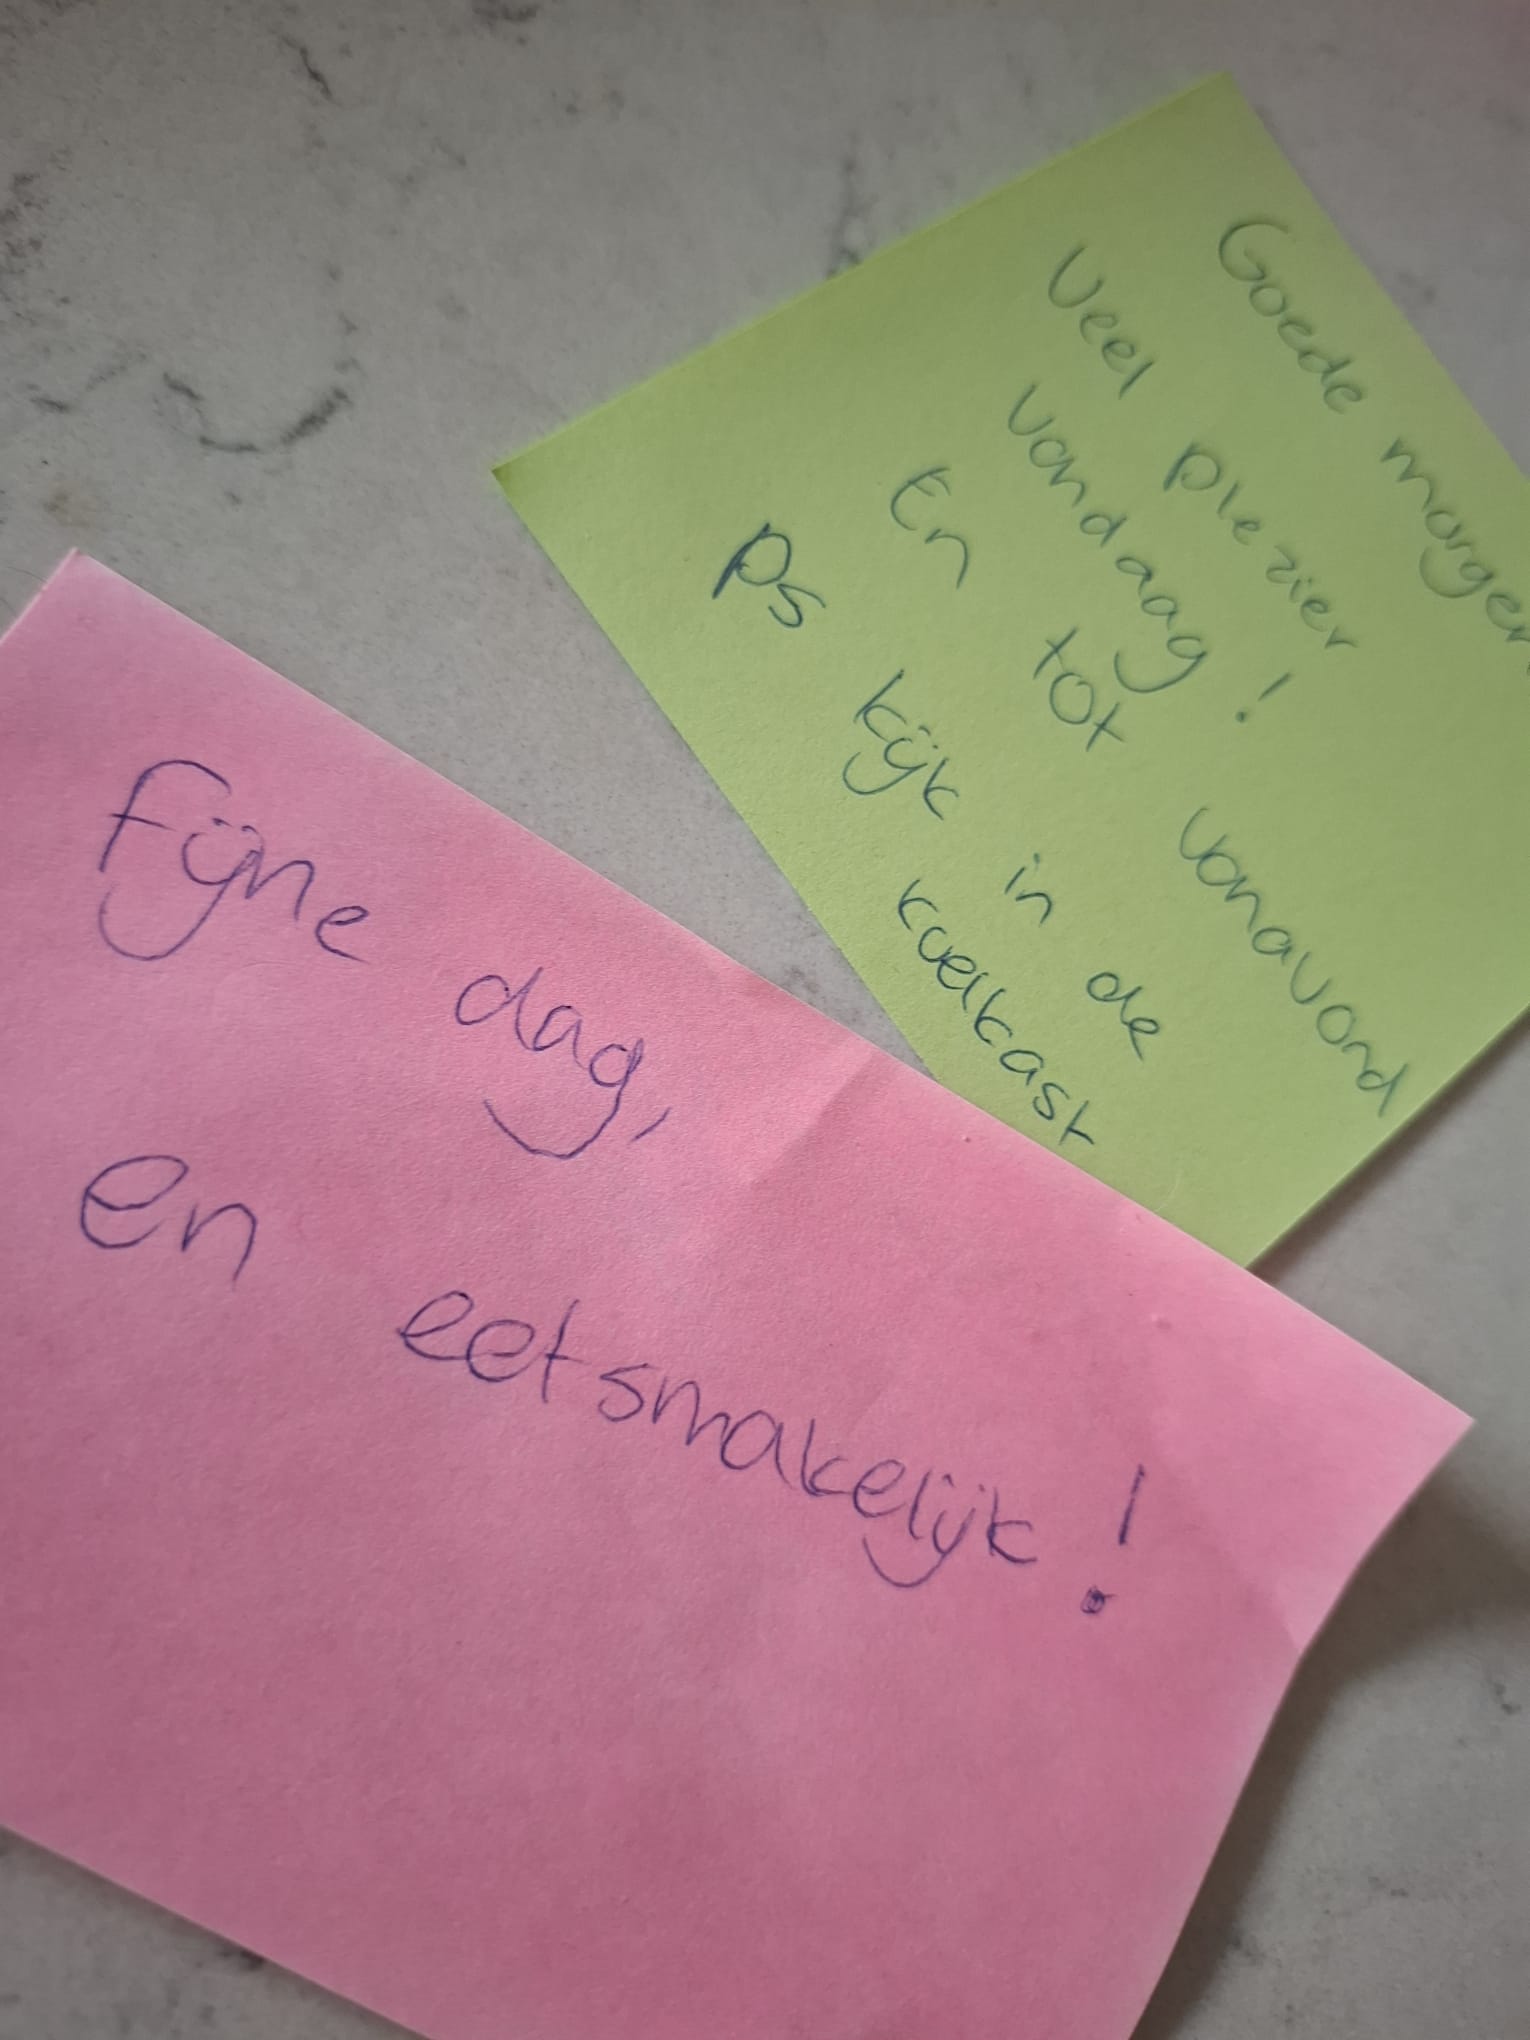 Goede morgen
Veel plezier
vandaag!
En tot vanavond
ps kijk in de
koelkast
Fijne dag,
en eetsmakelijk!